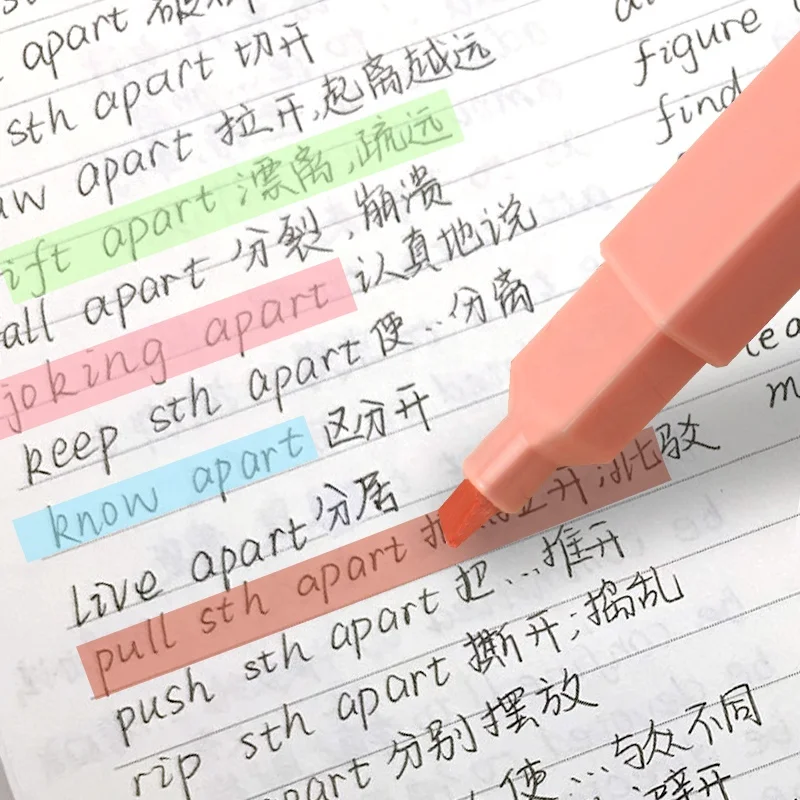 apart
figure
sth apart 切开
find
apart 拉开,起离越远
ift apart 漂离,疏远
all apart 分裂,崩溃
joking apart 认真地说
keep sth apart 使..分离
know apart 区分开
live apart 分居
pull sth apart 开;批驳
push sth apart 把...推开
rip sth apart 撕开;捣乱
apart 分别摆放
使...与众不同